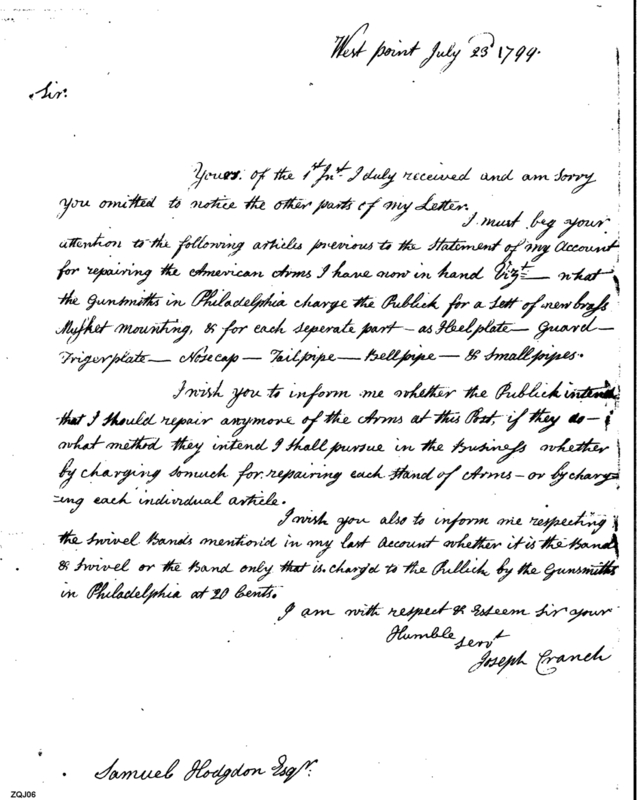 West point July 23d 1799.
Sir.
Yours. of the 1st Inst. I duly received and am sorry
you omitted to notice the other parts of my Letter.
I must beg your
attention to the following articles previous to the Statement of my Account
for repairing the American Arms I have now in hand Vizt — what
the Gunsmiths in Philadelphia charge the Publick for a Sett of new brass
Musket mounting, & for each seperate part — as Heelplate — Guard —
Trigerplate — Nosecap — Tailpipe — Bellpipe — & Smallpipes.
I wish you to inform me whether the Publick intend
that I should repair anymore of the Arms at this Post, if they do —
what method they intend I shall pursue in the Business whether
by charging somuch for repairing each Stand of Arms — or by charg=
=ing each individual article.
I wish you also to inform me respecting
the Swivel Bands mention'd in my last Account whether it is the Band
& Swivel or the Band only that is charg'd to the Publick by the Gunsmiths
in Philadelphia at 20 Cents.
I am with respect & Esteem Sir your
Humble Servt
Joseph Cranch
Samuel Hodgdon Esqr.
ZQJ06